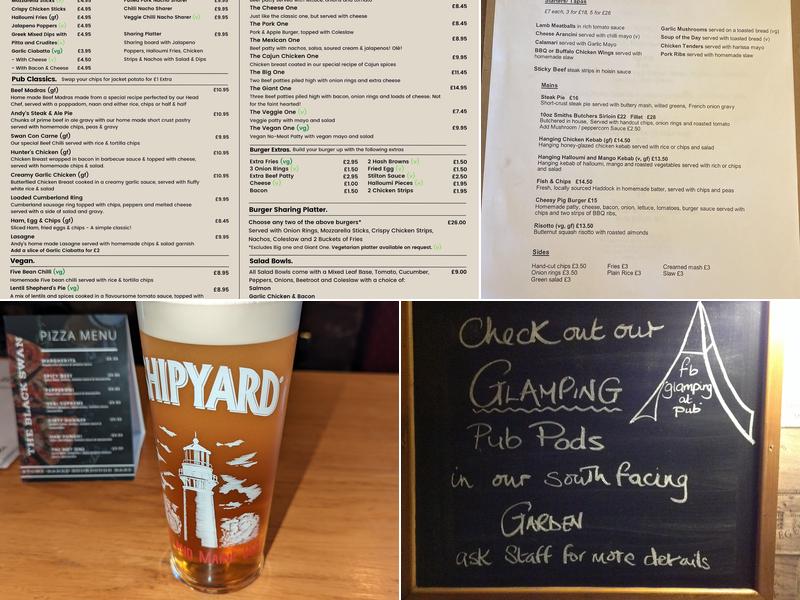 Mozzarella Sticks £4.95
Crispy Chicken Sticks £4.95
Halloumi Fries (gf) £4.95
Jalapeno Poppers (v) £4.95
Greek Mixed Dips with
Pitta and Crudites(v)
Garlic Ciabatta (vg) £3.95
- With Cheese (v) £4.50
- With Bacon & Cheese £4.95
Pulled Pork Nacho Sharer £9.95
Chilli Nacho Sharer £9.95
Veggie Chilli Nacho Sharer (v) £9.95
Sharing Platter £9.95
Sharing board with Jalapeno
Poppers, Halloumi Fries, Chicken
Strips & Nachos with Salsa & Dips
Pub Classics. Swap your chips for jacket potato for £1 Extra
Beef Madras (gf) £10.95
Home made Beef Madras made from a special recipe perfected by our Head
Chef, served with a poppadom, naan and either rice, chips or half & half
Andy's Steak & Ale Pie £10.95
Chunks of prime beef in ale gravy with our home made short crust pastry
served with homemade chips, peas & gravy
Swan Con Carne (gf) £9.95
Our special Beef Chilli served with rice & tortilla chips
Hunter's Chicken (gf) £10.95
Chicken Breast wrapped in bacon in barbecue sauce & topped with cheese,
served with homemade chips & salad.
Creamy Garlic Chicken (gf) £10.95
Butterflied Chicken Breast cooked in a creamy garlic sauce, served with fluffy
white rice & salad
Loaded Cumberland Ring £9.95
Cumberland sausage ring topped with chips, peppers and melted cheese
served with a side of salad and gravy.
Ham, Egg & Chips (gf) £8.45
Sliced Ham, fried eggs & chips - A simple classic!
Lasagne £9.95
Andy's home made Lasagne served with homemade chips & salad garnish
Add a slice of Garlic Ciabatta for £2
Vegan.
Five Bean Chilli (vg) £8.95
Homemade Five bean chilli served with rice & tortilla chips
Lentil Shepherd's Pie (vg) £8.95
A mix of lentils and spices cooked in a flavoursome tomato sauce, topped with
Beef patty served with lettuce, onion and tomato
The Cheese One £8.45
Just like the classic one, but served with cheese
The Pork One £8.45
Pork & Apple Burger, topped with Coleslaw
The Mexican One £8.95
Beef patty with nachos, salsa, soured cream & jalapenos! Olé!
The Cajun Chicken One £9.95
Chicken breast coated in our special recipe of Cajun spices
The Big One £11.45
Two Beef Patties piled high with onion rings and extra cheese
The Giant One £14.95
Three Beef Patties piled high with bacon, onion rings and loads of cheese. Not
for the faint hearted!
The Veggie One (v) £7.45
Veggie patty with mayo and salad
The Vegan One (vg) £9.95
Vegan No-Meat Patty with vegan mayo and salad
Burger Extras. Build your burger up with the following extras
Extra Fries (vg) £2.95 2 Hash Browns (v) £1.50
3 Onion Rings (v) £1.50 Fried Egg (v) £1.50
Extra Beef Patty £2.95 Stilton Sauce (v) £2.50
Cheese (v) £1.00 Halloumi Pieces (v) £1.95
Bacon £1.50 2 Chicken Strips £1.95
Burger Sharing Platter.
Choose any two of the above burgers* £26.00
Served with Onion Rings, Mozzarella Sticks, Crispy Chicken Strips,
Nachos, Coleslaw and 2 Buckets of Fries
*Excludes Big one and Giant One. Vegetarian platter available on request. (v)
Salad Bowls.
All Salad Bowls come with a Mixed Leaf Base, Tomato, Cucumber, £9.00
Peppers, Onions, Beetroot and Coleslaw with a choice of:
Salmon
Garlic Chicken & Bacon
Starters/Tapas
£7 each, 3 for £18, 5 for £26
Lamb Meatballs in rich tomato sauce
Cheese Arancini served with chilli mayo (v)
Calamari served with Garlic Mayo
BBQ or Buffalo Chicken Wings served with
homemade slaw
Sticky Beef steak strips in hoisin sauce
Garlic Mushrooms served on a toasted bread (vg)
Soup of the Day served with toasted bread (v)
Chicken Tenders served with harissa mayo
Pork Ribs served with homemade slaw
Mains
Steak Pie £16
Short-crust steak pie served with buttery mash, wilted greens, French onion gravy
10oz Smiths Butchers Sirloin £22 Fillet £28
Butchered in house, Served with handcut chips, onion rings and roasted tomato
Add Mushroom / peppercorn Sauce £2.50
Hanging Chicken Kebab (gf) £14.50
Hanging honey-glazed chicken kebab served with rice or chips and salad
Hanging Halloumi and Mango Kebab (v, gf) £13.50
Hanging kebab of halloumi, mango and roasted vegetables served with rice or chips
and salad
Fish & Chips £14.50
Fresh, locally sourced Haddock in homemade batter, served with chips and peas
Cheesy Pig Burger £15
Homemade patty, cheese, bacon, onion, lettuce, tomatoes, burger sauce served with
chips and two strips of BBQ ribs,
Risotto (vg, gf) £13.50
Butternut squash risotto with roasted almonds
Sides
Hand-cut chips £3.50 Fries £3 Creamed mash £3
Onion rings £3.50 Plain Rice £3 Slaw £3
Green salad £3
THE BLACK SWAN
PIZZA MENU
MARGHERITA
SPICY BEEF
PEPPERONI
STONE BAKED SOURDOUGH BASE
SHIPYARD
Check out our
GLAMPING
Pub Pods
in our south facing
GARDEN
ask Staff for more details
fb
'glamping
at
pub'